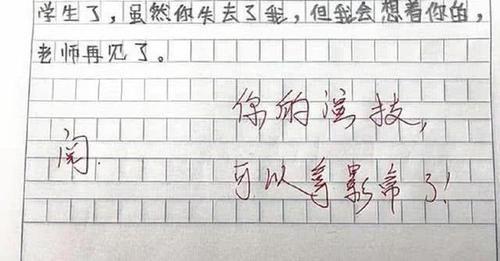 学生了，虽然你失去了我，但我会想着你的，
老师再见了。
你的演技，
阅.
可以拿影帝了！